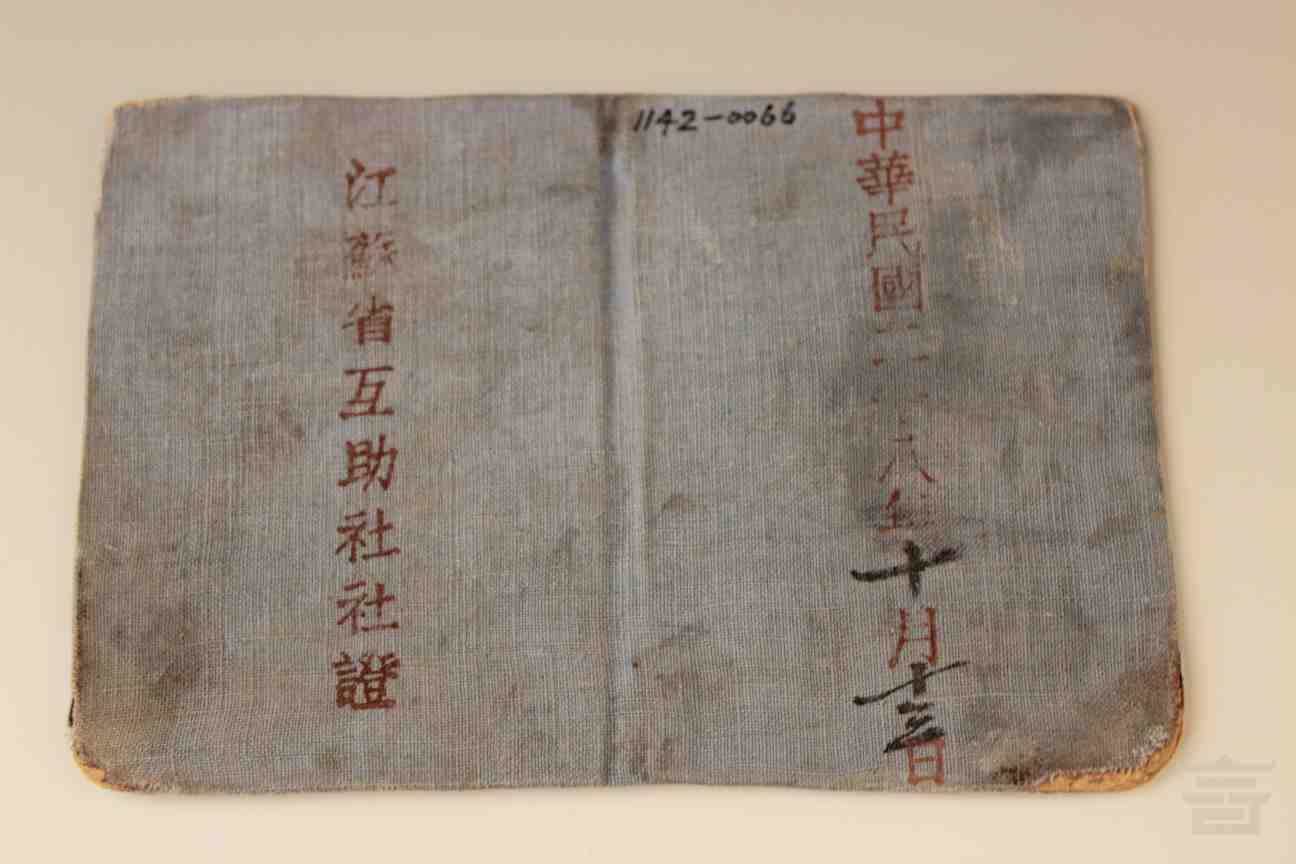 1142-0066
中華民國二十八年十月十三日
江蘇省互助社社證